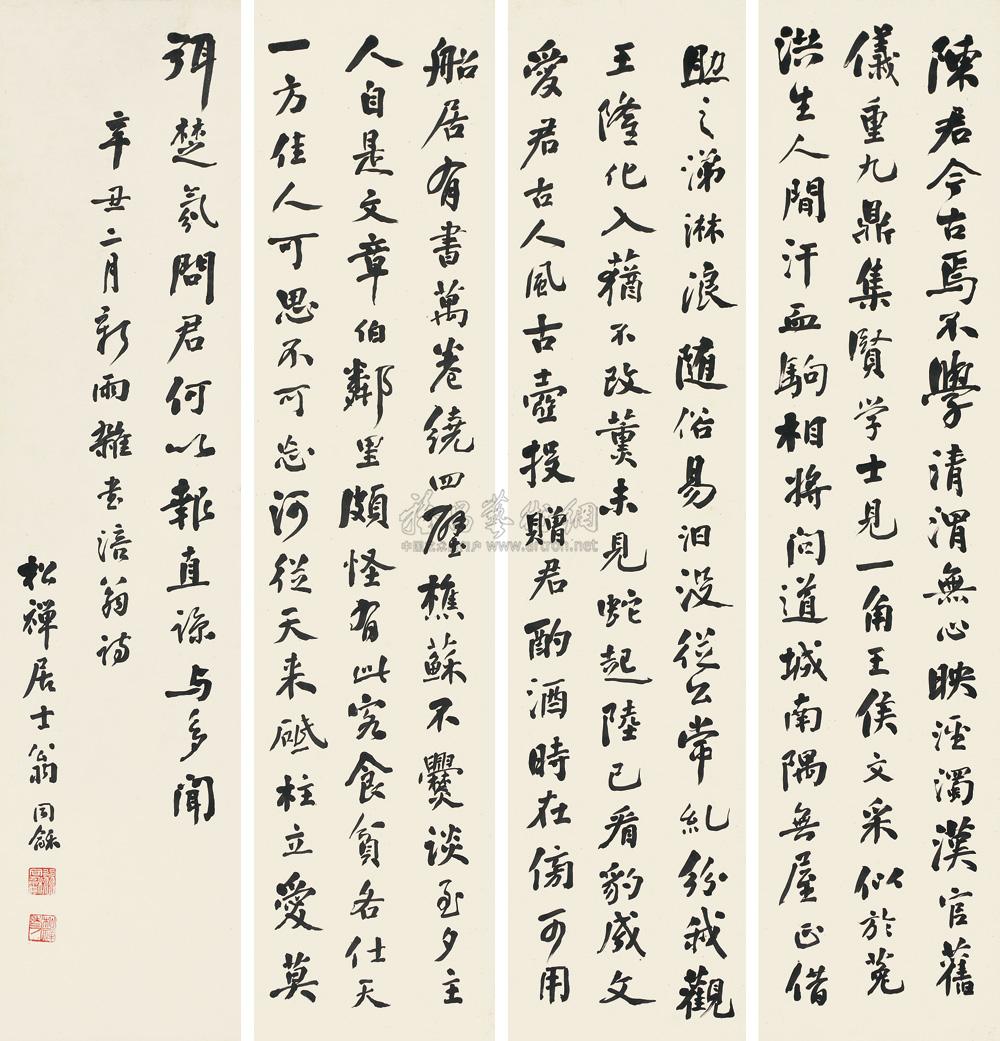 陳君今古焉不學清渭無心映涇濁漢官舊
儀重九鼎集賢学士見一角王侯文采似於菟
洪生人間汗血駒相將问道城南隅無屋正借
助之涕淋浪随俗易汩没從公常糺紛我觀
王隆化入蕕不改薰未見蛇起陸已看豹成文
愛君古人風古壺投贈君酌酒時在傍可用
船居有書萬卷繞四壁樵蘇不爨談至夕主
人自是文章伯鄰里頗怪有此客食貧各仕天
一方佳人可思不可忘河從天来砥柱立愛莫
弭楚氛問君何以報直諒与多闻
辛丑二月新雨雜书涪翁诗
松禅居士翁同龢
中国艺术品门户 www.artron.net